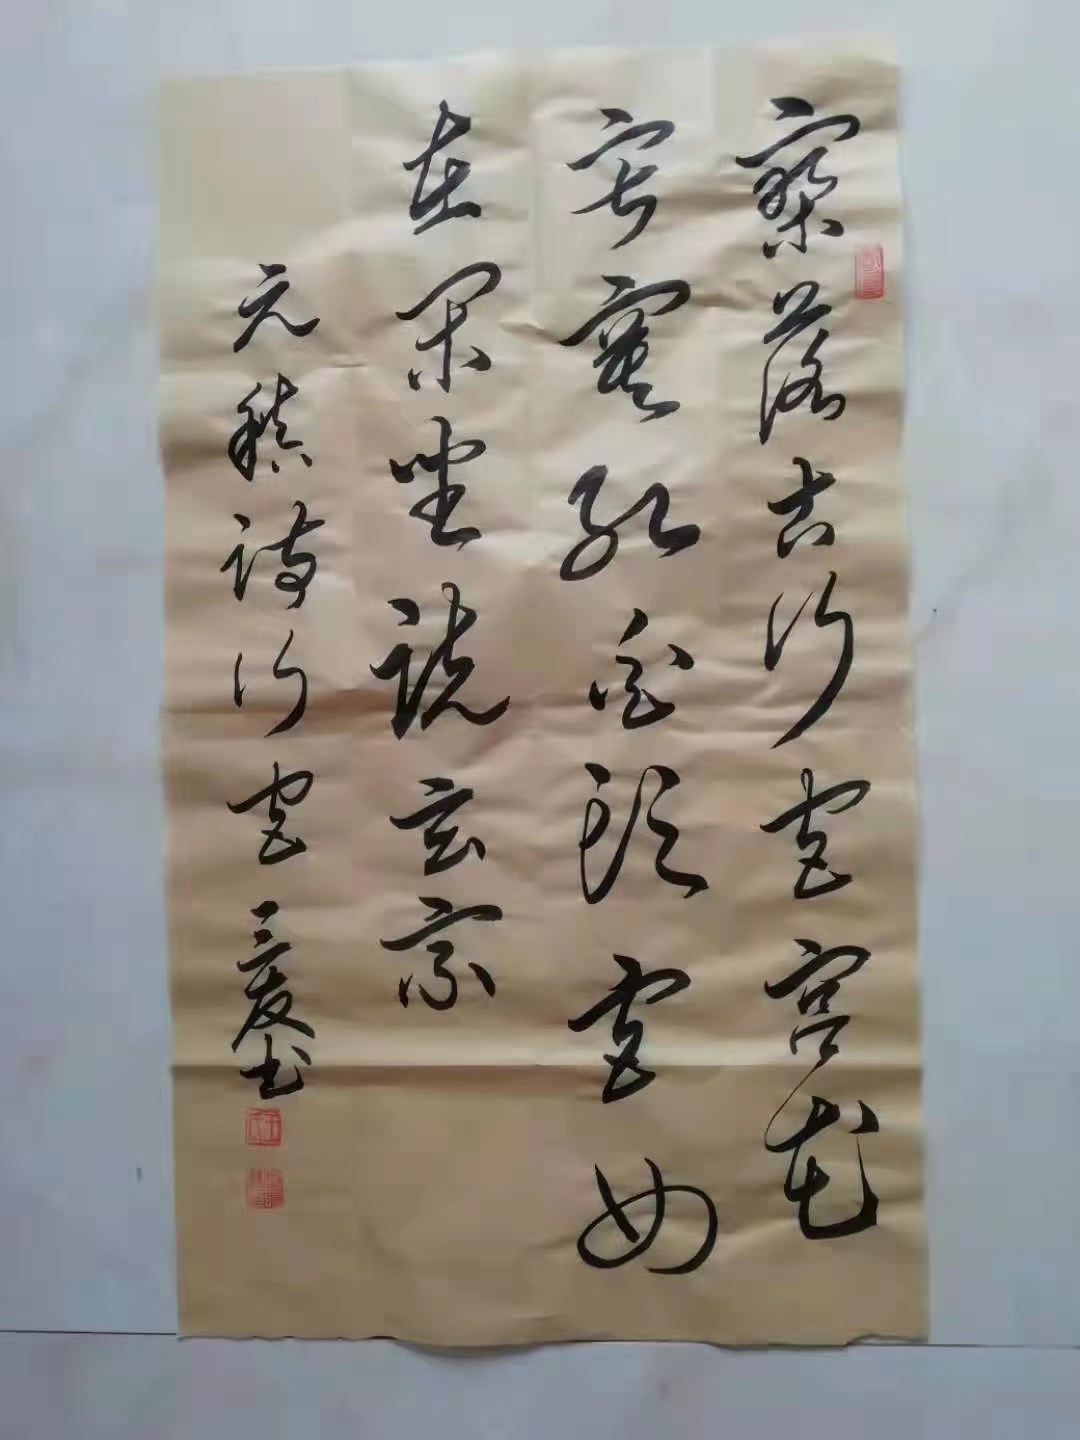 寥落古行宫宫花
寂寞红白头宫女
在闲坐说玄宗
元稹诗行宫 书